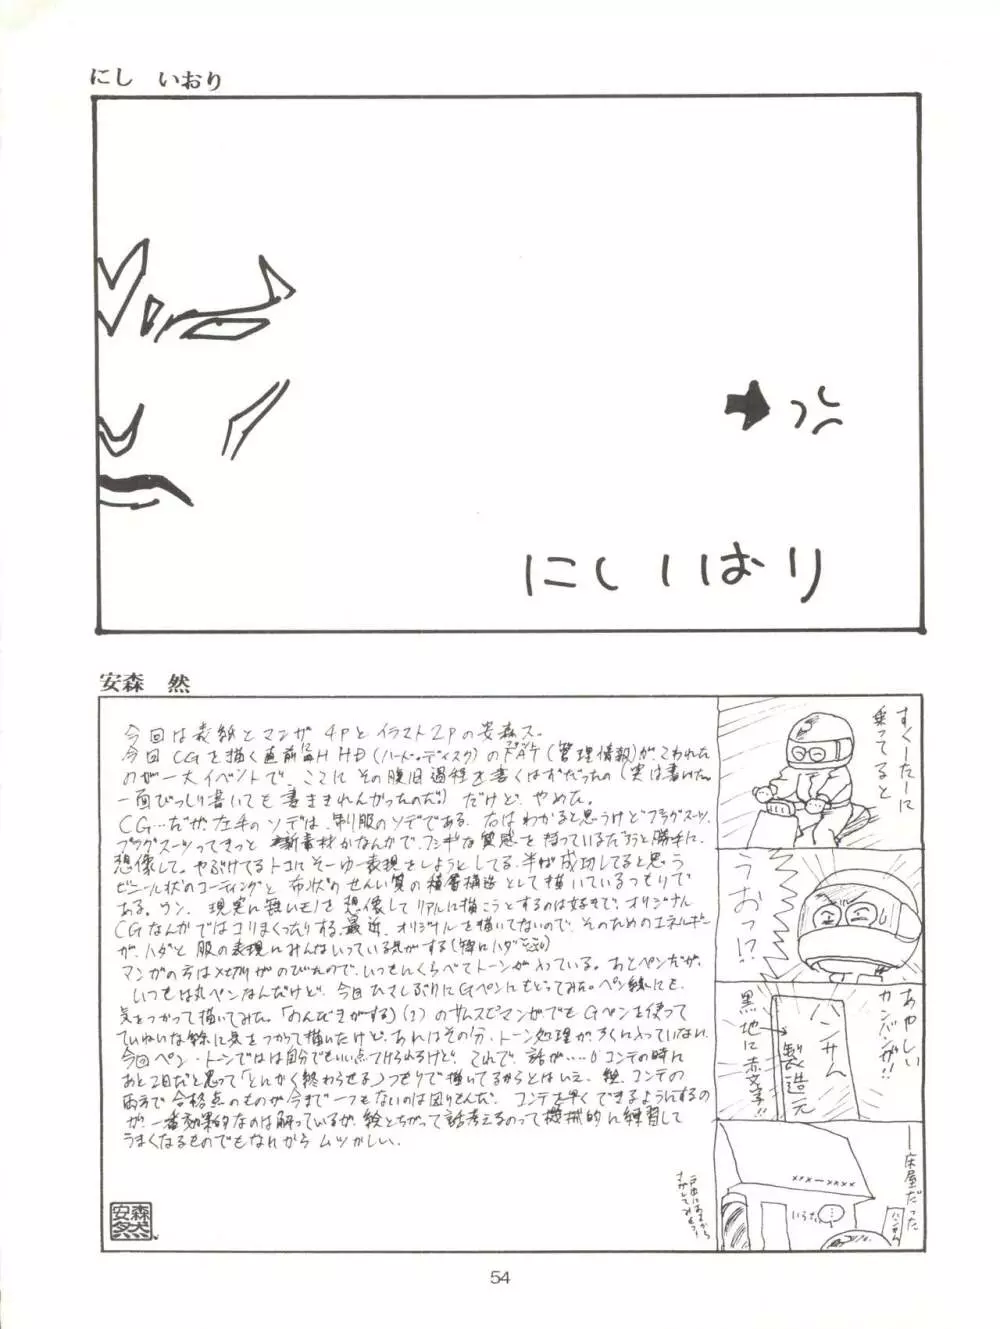 にし　いおり
にしいおり
安森　然
今回は表紙とマンガ4Pとイラスト2Pの安森ス。
今回CGを描く直前にH HD(ハード・ディスク)のFAT(管理情報)が、こわれた
のが一大イベントで、ここにその復旧過程を書くはずだったの(実は書いた。
一面びっしり書いても書ききれんかったのだ。)だけど、やめた。
CG…だが、左手のソデは、制服のソデである。右はわかると思うけどプラグスーツ。
プラグスーツってきっと新素材かなんかで、フシギな質感を持っているだろうと勝手に
想像して。やぶけてるトコにそーゆー表現をしようとしてる。半ば成功してると思う
ビニール状のコーティングと布状のせんい質の積層構造として描いているつもりで
ある。ウン。現実に無いモノを想像してリアルに描こうとするのは好きで、オリジナル
CGなんかではコリまくったりする。最近、オリジナルを描いてないので、そのためのエネルギー
が、ハダと服の表現にみんないっている気がする(特にハダ
マンガの方は〆切りがのびたので、いつもにくらべてトーンが入っている。あとペンだが、
いつもは丸ペンなんだけど、今回ひさしぶりにGペンにもどってみた。ペン線にも、
気をつかって描いてみた。「のんびきがする」(2)のサムスピマンガでもGペンを使って
ていねいな線に気をつかって描いたけど、あれはその分、トーン処理が、ろくに入っていない。
今回ペン・トーンでは自分でもいい点つけられるけど、これで、話が……。コンテの時に
あと2日だと思って「とにかく終わらせる」つもりで描いてるからとはいえ、絵、コンテの
両方で合格点のものが今まで一つもないのは困りもんだ。コンテを早くできるようにするの
が、一番効果的なのは解っているが、絵とちがって話考えるのって機械的に練習して
うまくなるものでもなれから ムツかしい。
安森然
すくーたーに
乗ってると
うおっ!?
あやしい
カンバンが!!
ハンサム
製造元
黒地に赤文字!!
―床屋だった
ハンサム
いらた
…
54